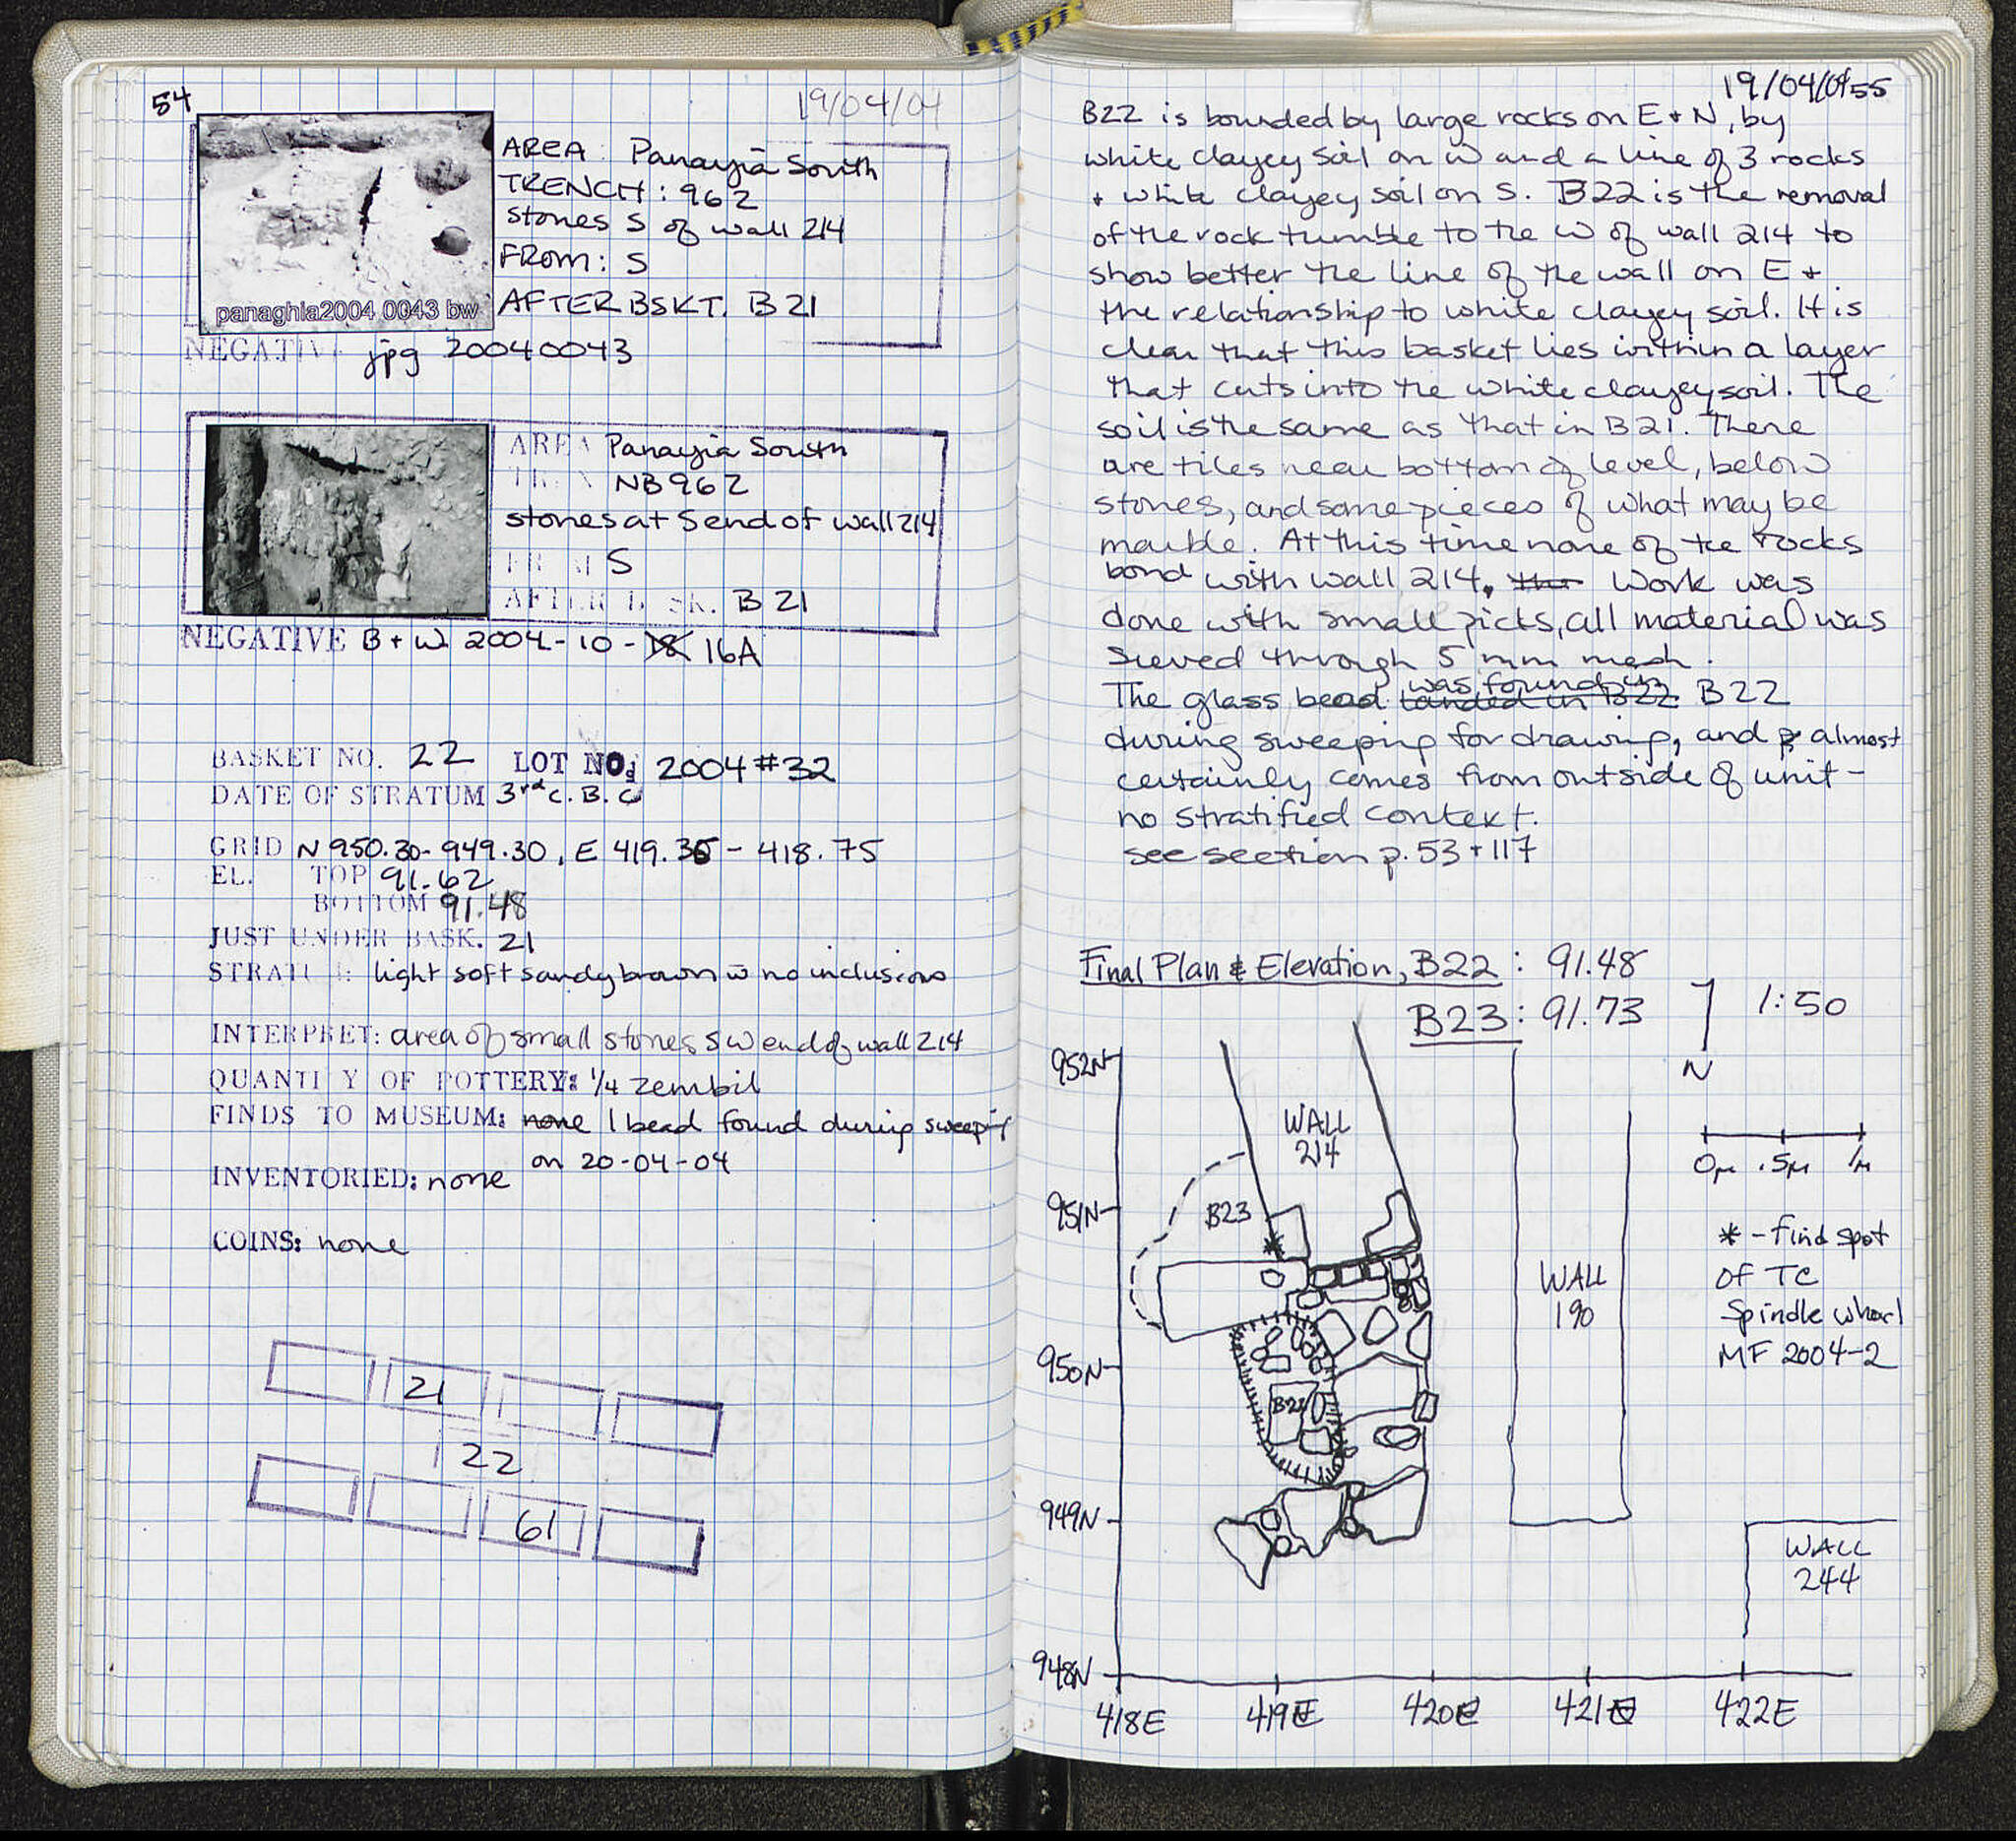 54
19/04/04
AREA: Panayia South
TRENCH: 962
stones S of wall 214
FROM: S
AFTER BSKT. B21
panaghia2004 0043 bw
NEGATIVE jpg 20040043
AREA Panayia South
NB962
stones at S end of wall 214
FROM S
AFTER BSK. B21
NEGATIVE B+W 2004-10-18 16A
BASKET NO. 22 LOT NO. 2004 #32
DATE OF STRATUM 3rd c. B.C
GRID N 950.30-949.30, E 419.35-418.75
EL. TOP 91.62
BOTTOM 91.48
JUST UNDER BASK. 21
STRATUM: light soft sandy brown w̄ no inclusions
INTERPRET: area of small stones SW end of wall 214
QUANTITY OF POTTERY: 1/4 zembil
FINDS TO MUSEUM: none 1 bead found during sweeping
on 20-04-04
INVENTORIED: none
COINS: none
21
22
61
19/04/04 55
B22 is bounded by large rocks on E + N, by
white clayey soil on W and a line of 3 rocks
+ white clayey soil on S. B22 is the removal
of the rock tumble to the W of wall 214 to
show better the line of the wall on E +
the relationship to white clayey soil. It is
clear that this basket lies within a layer
that cuts into the white clayey soil. The
soil is the same as that in B21. There
are tiles near bottom of level, below
stones, and some pieces of what may be
marble. At this time none of the rocks
bond with wall 214. Work was
done with small picks, all material was
sieved through 5 mm mesh.
The glass bead landed in B22 was found in B22
during sweeping for drawing, and almost
certainly comes from outside of unit -
no stratified context.
see section p. 53 + 117
Final Plan & Elevation, B22: 91.48
B23: 91.73
1:50
N
952N
951N
950N
949N
948N
418E
419E
420E
421E
422E
WALL
214
B23
B22
WALL
190
WALL
244
0M .5M 1M
* - find spot
of TC
Spindle whorl
MF 2004-2